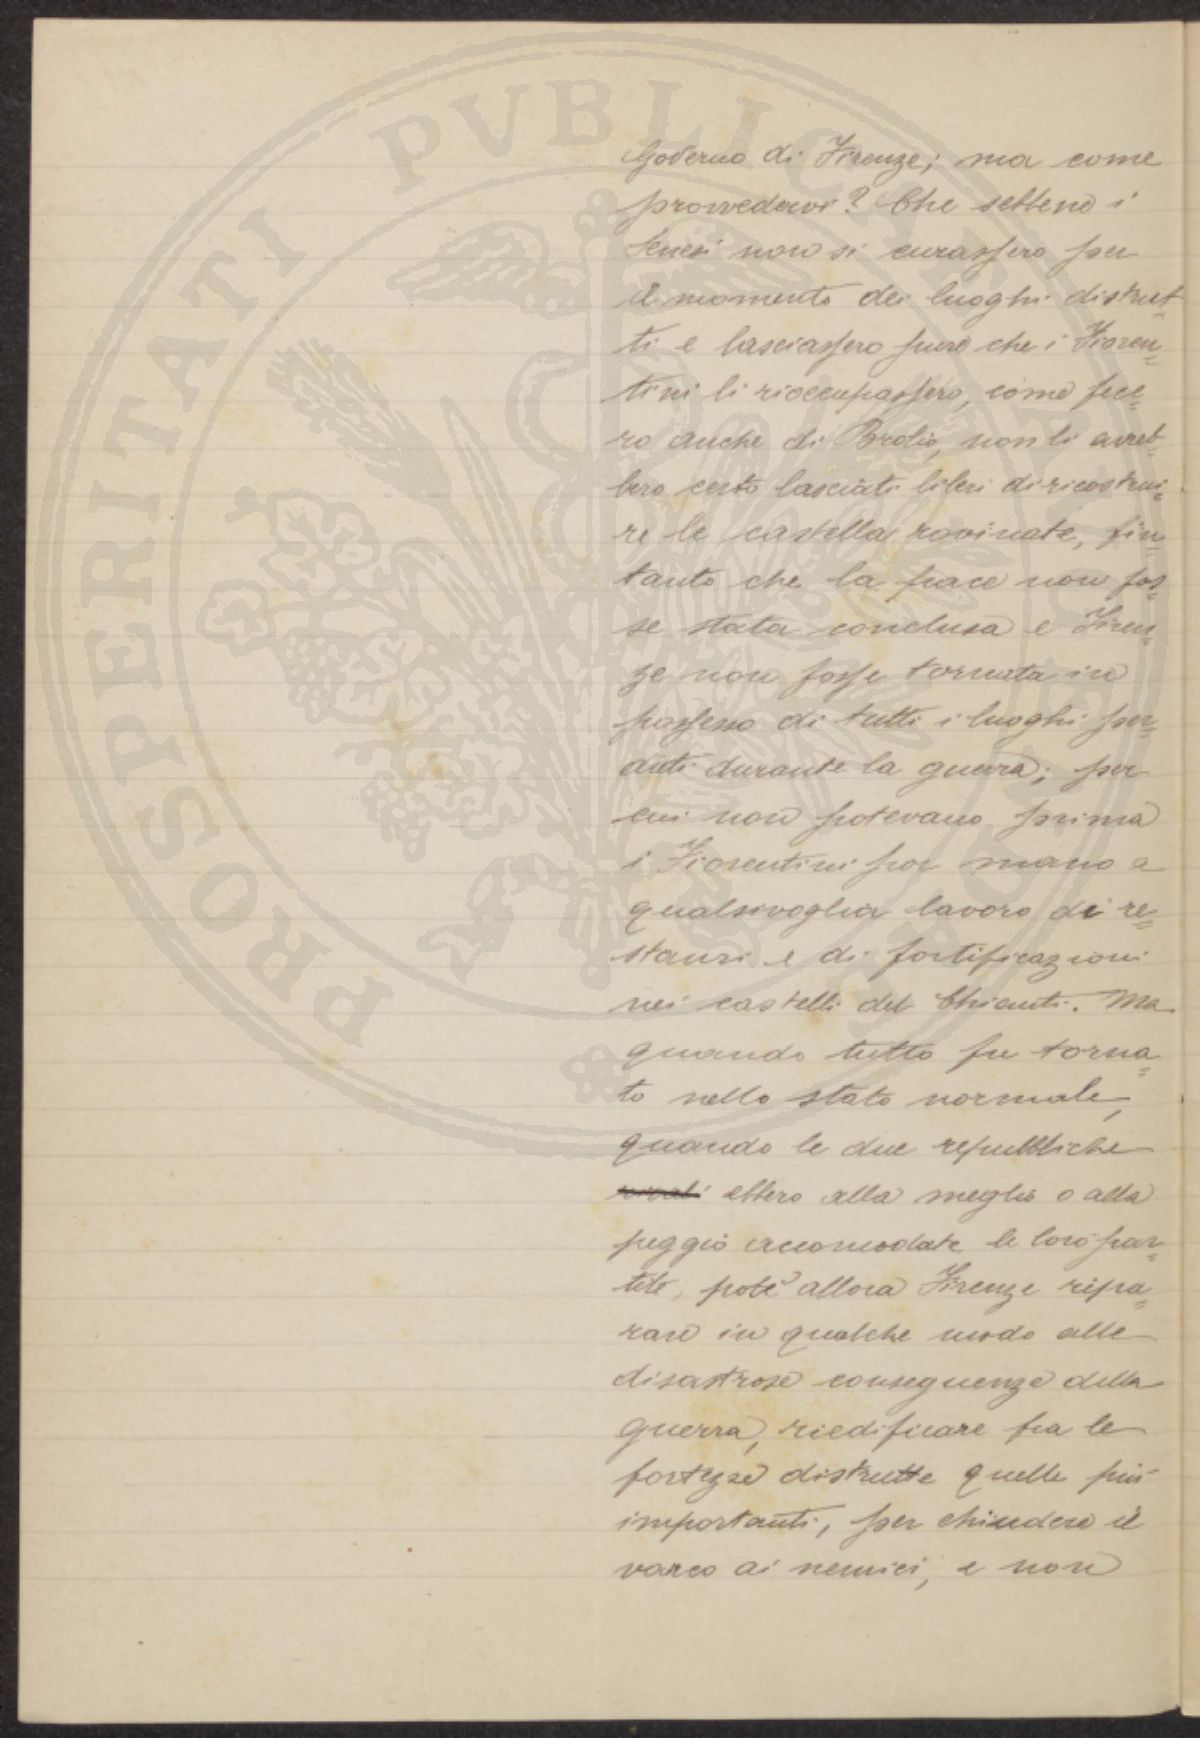 Governo di Firenze; ma come
provvedervi? Che sebbene i
Senesi non si curassero per
il momento dei luoghi distrut=
ti e lasciassero pure che i Fioren=
tini li rioccupassero, come fece=
ro anche di Brolio, non li avreb=
bero certo lasciati liberi di ricostrui=
re le castella rovinate, fin=
tanto che la pace non fos=
se stata conclusa e Firen=
ze non fosse tornata in
possesso di tutti i luoghi per=
duti durante la guerra; per
cui non potevano prima
i Fiorentini por mano a
qualsivoglia lavoro di re=
stauri e di fortificazioni
nei castelli del Chianti. Ma
quando tutto fu torna=
to nello stato normale,
quando le due repubbliche
rivali ebbero alla meglio o alla
peggio accomodate le loro par=
tite, potè allora Firenze ripa=
rare in qualche modo alle
disastrose conseguenze della
guerra, riedificare fra le
fortezze distrutte quelle più
importanti, per chiudere il
varco ai nemici, e non
PROSPERITATI PVBLICAE